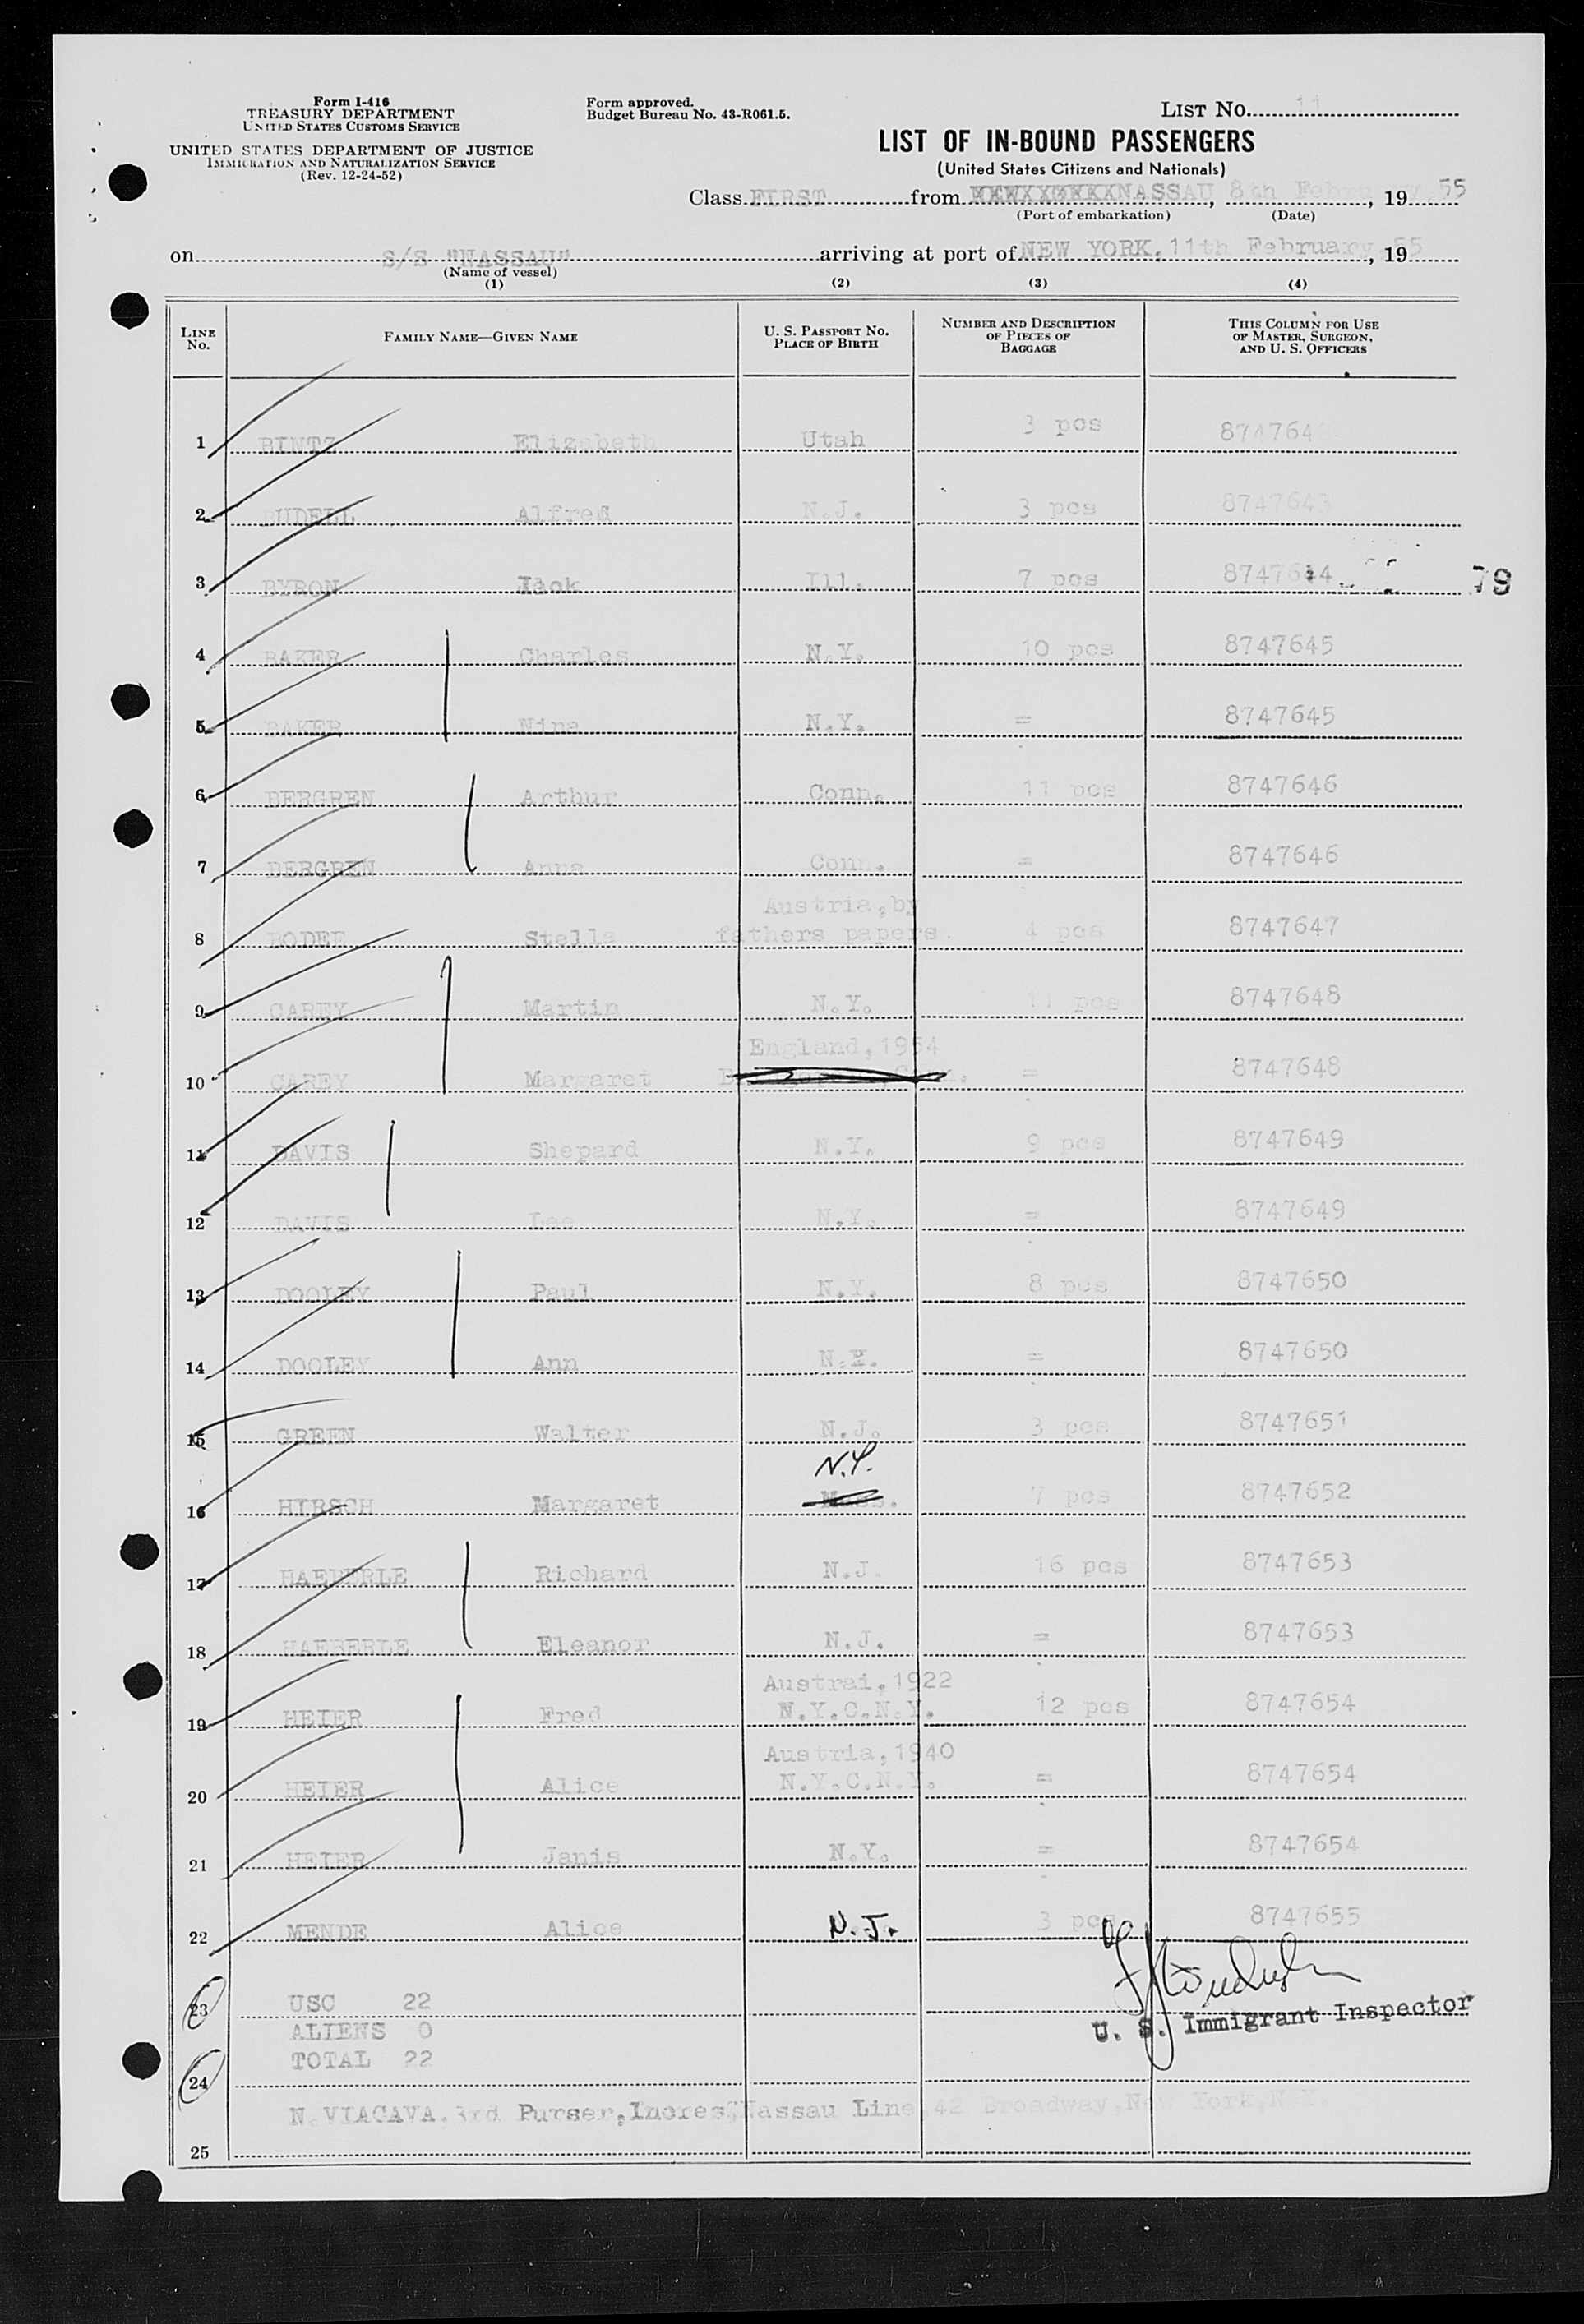 Form I-416
TREASURY DEPARTMENT
UNITED STATES CUSTOMS SERVICE
UNITED STATES DEPARTMENT OF JUSTICE
IMMIGRATION AND NATURALIZATION SERVICE
(Rev. 12-24-52)
Form approved.
Budget Bureau No. 43-R061.5.
LIST No. 11
LIST OF IN-BOUND PASSENGERS
(United States Citizens and Nationals)
Class FIRST from NASSAU, 8th February, 19 55
(Port of embarkation) (Date)
on S/S "NASSAU" arriving at port of NEW YORK, 11th February, 19 55
(Name of vessel)
(1) (2) (3) (4)
LINE No. FAMILY NAME—GIVEN NAME U. S. PASSPORT No. PLACE OF BIRTH NUMBER AND DESCRIPTION OF PIECES OF BAGGAGE THIS COLUMN FOR USE OF MASTER, SURGEON, AND U. S. OFFICERS
1 BINTZ Elizabeth Utah 3 pcs 874764
2 BUDELL Alfred N.J. 3 pcs 8747643
3 BYRON Ill. 7 pcs 8747644 79
4 BAKER Charles N.Y. 10 pcs 8747645
5 BAKER Nina N.Y. = 8747645
6 BERGREN Arthur Conn. 11 pcs 8747646
7 BERGREN Anna Conn. = 8747646
Austria, by
8 BODEE Stella fathers papers. 4 pcs 8747647
9 CAREY Martin N.Y. 11 pcs 8747648
England, 1954
10 CAREY Margaret = 8747648
11 DAVIS Shepard N.Y. 9 pcs 8747649
12 DAVIS Lee N.Y. = 8747649
13 DOOLEY Paul N.Y. 8 pcs 8747650
14 DOOLEY Ann N.Y. = 8747650
15 GREEN Walter N.J. 3 pcs 8747651
N.Y.
16 HIRSCH Margaret Mass. 7 pcs 8747652
17 HAEBERLE Richard N.J. 16 pcs 8747653
18 HAEBERLE Eleanor N.J. = 8747653
Austrai, 1922
19 HEIER Fred N.Y.C.N.Y. 12 pcs 8747654
Austria, 1940
20 HEIER Alice N.Y.C.N.Y. = 8747654
21 HEIER Janis N.Y. = 8747654
22 MENDE Alice N.J. 3 pcs 8747655
23 USC 22
ALIENS 0
U. S. Immigrant Inspector
TOTAL 22
24
N. VIACAVA. 3rd Purser, Incres Nassau Line, 42 Broadway, New York, N.Y.
25